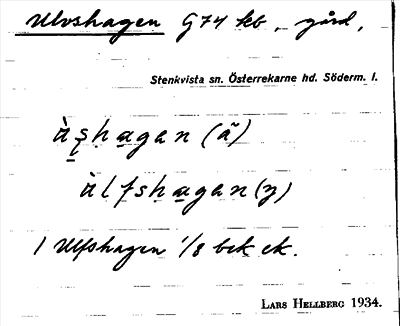 Ulvshagen G74 kb, gård,
Stenkvista sn. Österrekarne hd. Söderm. l.
ùl̥shagen (ã)
ùlfshagen (y)
1 Ulfshagen 1/8 bck ek.
LARS HELLBERG 1934.